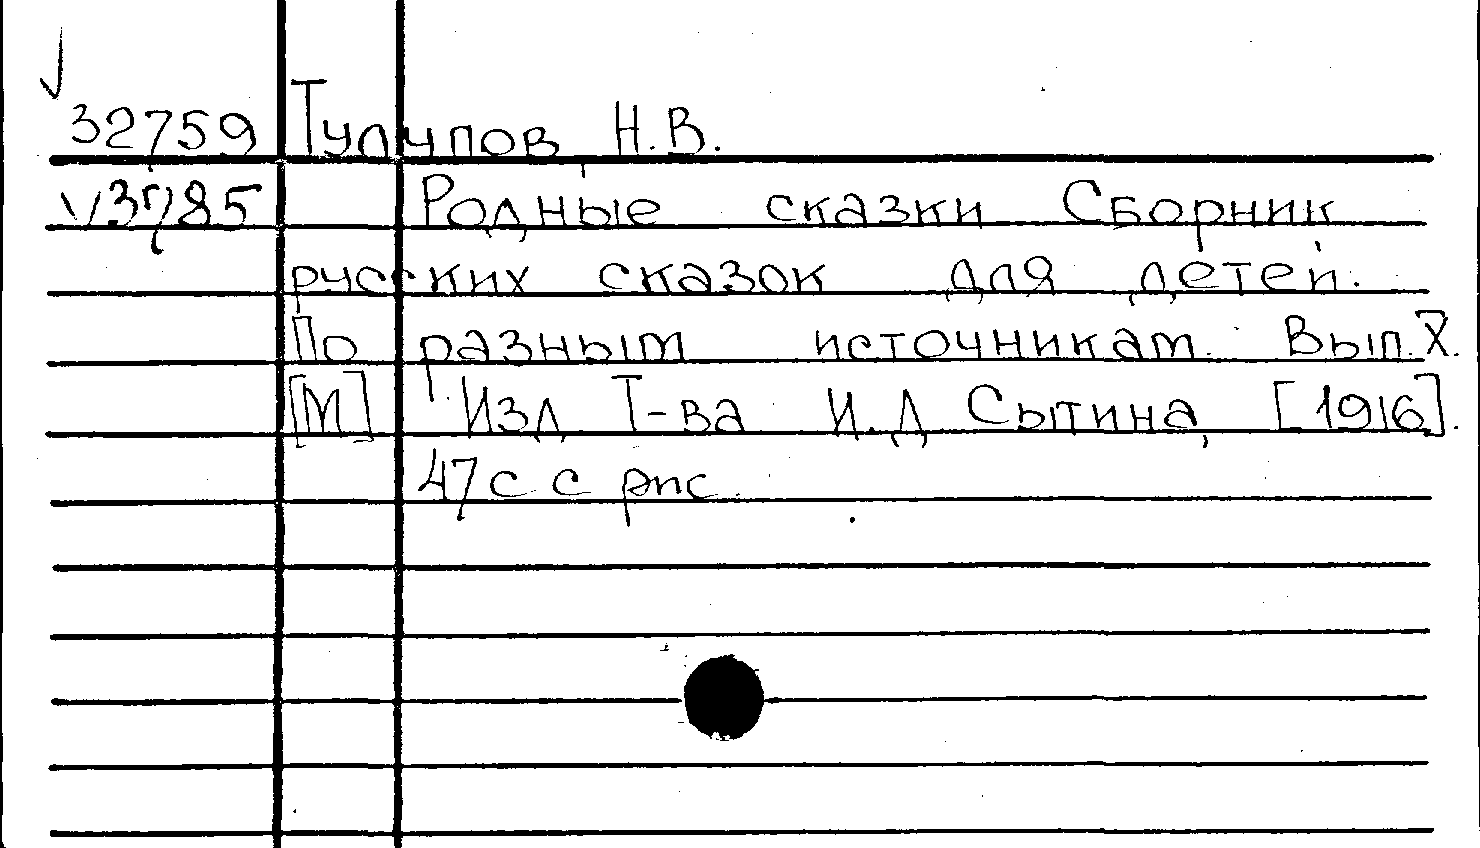 32759 Тулупов Н.В.
√3785 Родные сказки Сборник
русских сказок для детей.
По разным источникам. Вып. X.
[М] Изд Т-ва И.Д Сытина, [1916].
47с с рис.